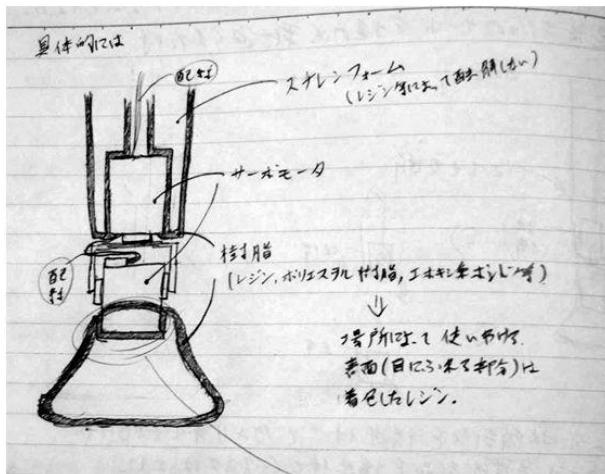 具体的には
配線
スチレンフォーム
(レジン等によって融解しない)
サーボモータ
配線
樹脂
(レジン、ポリエステル樹脂、エポキシ系ボンド等)
⇓
場所によって使い分ける。
表面(目にふれる部分)は
着色したレジン.